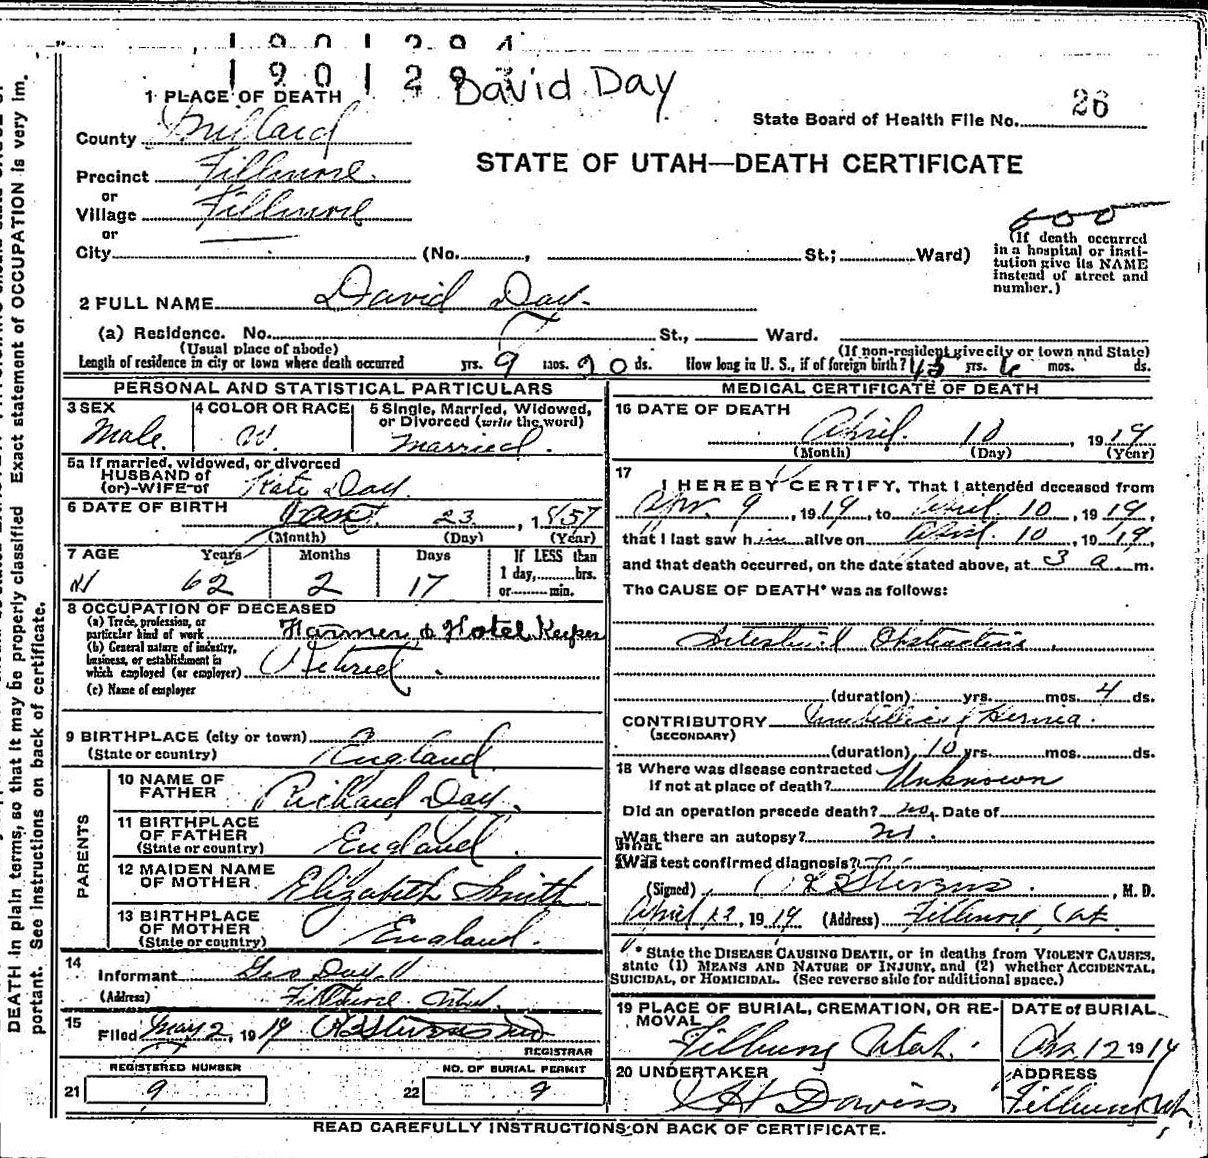 1901294
190129
David Day
1 PLACE OF DEATH
26
State Board of Health File No.
County Millard
STATE OF UTAH—DEATH CERTIFICATE
Precinct Fillmore
or
Village Fillmore
or
City (No. , St.; Ward)
(If death occurred in a hospital or institution give its NAME instead of street and number.)
2 FULL NAME David Day
(a) Residence. No. St., Ward.
(Usual place of abode) (If non-resident give city or town and State)
Length of residence in city or town where death occurred yrs. 9 mos. ds. How long in U. S., if of foreign birth? yrs. 6 mos. ds.
PERSONAL AND STATISTICAL PARTICULARS
3 SEX Male
4 COLOR OR RACE W
5 Single, Married, Widowed, or Divorced (write the word) Married
5a If married, widowed, or divorced
HUSBAND of
(or) WIFE of Kate Day
6 DATE OF BIRTH 23, 1857
(Month) (Day) (Year)
7 AGE Years Months Days If LESS than
62 2 17 1 day, hrs.
or min.
8 OCCUPATION OF DECEASED
(a) Trade, profession, or
particular kind of work Farmer & Hotel Keeper
(b) General nature of industry,
business, or establishment in
which employed (or employer) Retired
(c) Name of employer
9 BIRTHPLACE (city or town) England
(State or country)
PARENTS
10 NAME OF FATHER Richard Day
11 BIRTHPLACE OF FATHER England
(State or country)
12 MAIDEN NAME OF MOTHER Elizabeth Smith
13 BIRTHPLACE OF MOTHER England
(State or country)
14 Informant Geo Day
(Address) Fillmore Utah
15 Filed May 2, 1919
REGISTRAR
REGISTERED NUMBER
21 9
NO. OF BURIAL PERMIT
22 9
MEDICAL CERTIFICATE OF DEATH
16 DATE OF DEATH
April 10, 1919
(Month) (Day) (Year)
17 I HEREBY CERTIFY, That I attended deceased from
Apr. 9, 1919, to April 10, 1919,
that I last saw him alive on April 10, 1919,
and that death occurred, on the date stated above, at 3 a m.
The CAUSE OF DEATH* was as follows:
Intestinal Obstruction
(duration) yrs. mos. 4 ds.
CONTRIBUTORY Umbilical Hernia
(SECONDARY)
(duration) 10 yrs. mos. ds.
18 Where was disease contracted
if not at place of death? Unknown
Did an operation precede death? no. Date of
Was there an autopsy? no
What
Was test confirmed diagnosis?
(Signed) Stevens, M. D.
April 12, 1919 (Address) Fillmore, Utah
* State the DISEASE CAUSING DEATH, or in deaths from VIOLENT CAUSES,
state (1) MEANS AND NATURE OF INJURY, and (2) whether ACCIDENTAL,
SUICIDAL, or HOMICIDAL. (See reverse side for additional space.)
19 PLACE OF BURIAL, CREMATION, OR REMOVAL Fillmore Utah
DATE of BURIAL Apr. 12 1919
20 UNDERTAKER
ADDRESS
READ CAREFULLY INSTRUCTIONS ON BACK OF CERTIFICATE.
DEATH in plain terms, so that it may be properly classified Exact statement of OCCUPATION is very im-
portant. See instructions on back of certificate.